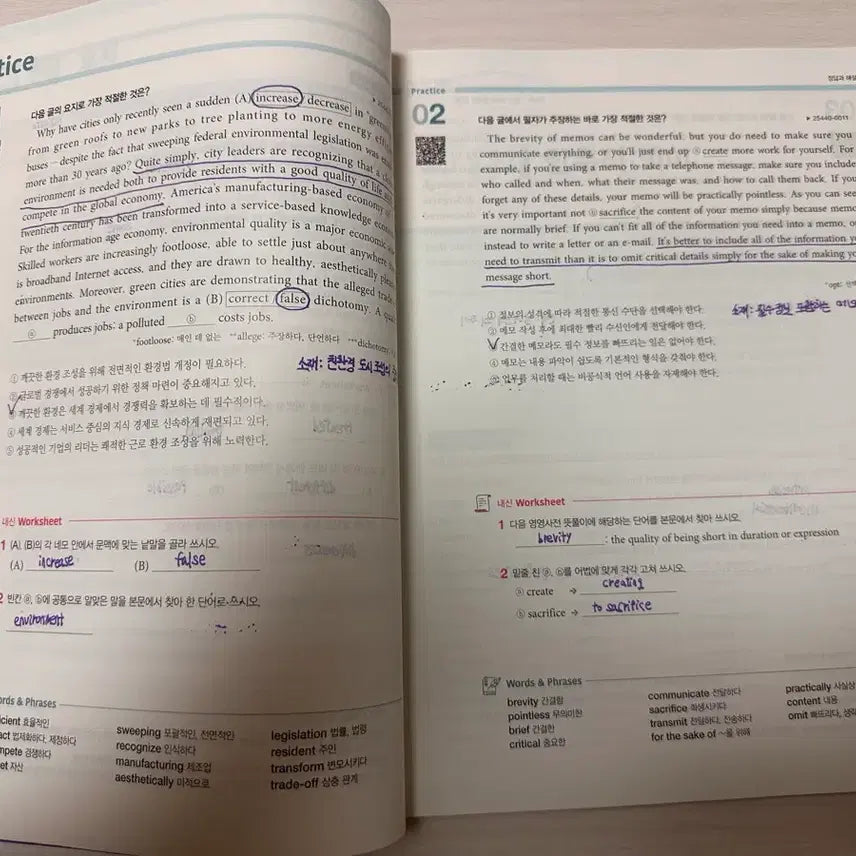 tice
다음 글의 요지로 가장 적절한 것은?
Why have cities only recently seen a sudden (A) increase / decrease in "green
from green roofs to new parks to tree planting to more energy
buses – despite the fact that sweeping federal environmental legislation was
more than 30 years ago? Quite simply, city leaders are recognizing that a
environment is needed both to provide residents with a good quality of life
compete in the global economy. America's manufacturing-based economy
twentieth century has been transformed into a service-based knowledge
For the information age economy, environmental quality is a major economic
Skilled workers are increasingly footloose, able to settle just about anywhere
is broadband Internet access, and they are drawn to healthy, aesthetically
environments. Moreover, green cities are demonstrating that the alleged
between jobs and the environment is a (B) correct / false dichotomy. A
ⓐ produces jobs: a polluted ⓑ costs jobs.
*footloose: 매인 데 없는 **allege: 주장하다, 단언하다
① 깨끗한 환경 조성을 위해 전면적인 환경법 개정이 필요하다.
② 글로벌 경쟁에서 성공하기 위한 정책 마련이 중요해지고 있다.
③ 깨끗한 환경은 세계 경제에서 경쟁력을 확보하는 데 필수적이다.
④ 세계 경제는 서비스 중심의 지식 경제로 신속하게 재편되고 있다.
⑤ 성공적인 기업의 리더는 쾌적한 근로 환경 조성을 위해 노력한다.
소재: 친환경 도시 조성의
내신 Worksheet
1 (A), (B)의 각 네모 안에서 문맥에 맞는 낱말을 골라 쓰시오.
(A) increase (B) false
2 빈칸 ⓐ, ⓑ에 공통으로 알맞은 말을 본문에서 찾아 한 단어로 쓰시오.
environment
ords & Phrases
icient 효율적인
act 법제화하다, 제정하다
mpete 경쟁하다
et 자산
sweeping 포괄적인, 전면적인
recognize 인식하다
manufacturing 제조업
aesthetically 미적으로
legislation 법률, 법령
resident 주민
transform 변모시키다
trade-off 상충 관계
정답과 해설
Practice
02
다음 글에서 필자가 주장하는 바로 가장 적절한 것은?
▶ 25440-0011
The brevity of memos can be wonderful, but you do need to make sure you
communicate everything, or you'll just end up ⓐcreate more work for yourself. For
example, if you're using a memo to take a telephone message, make sure you include
who called and when, what their message was, and how to call them back. If you
forget any of these details, your memo will be practically pointless. As you can see
it's very important not ⓑsacrifice the content of your memo simply because memo
are normally brief. If you can't fit all of the information you need into a memo,
instead to write a letter or an e-mail. It's better to include all of the information
need to transmit than it is to omit critical details simply for the sake of making
message short.
*opt:
① 정보의 성격에 따라 적절한 통신 수단을 선택해야 한다.
② 메모 작성 후에 최대한 빨리 수신인에게 전달해야 한다.
③ 간결한 메모라도 필수 정보를 빠뜨리는 일은 없어야 한다.
④ 메모는 내용 파악이 쉽도록 기본적인 형식을 갖춰야 한다.
⑤ 업무를 처리할 때는 비공식적 언어 사용을 자제해야 한다.
소재: 필수정보 포함하는
내신 Worksheet
1 다음 영영사전 뜻풀이에 해당하는 단어를 본문에서 찾아 쓰시오.
brevity : the quality of being short in duration or expression
2 밑줄 친 ⓐ, ⓑ를 어법에 맞게 각각 고쳐 쓰시오.
ⓐ create → creating
ⓑ sacrifice → to sacrifice
Words & Phrases
brevity 간결함
pointless 무의미한
brief 간결한
critical 중요한
communicate 전달하다
sacrifice 희생시키다
transmit 전달하다, 전송하다
for the sake of ~을 위해
practically 사실상
content 내용
omit 빠뜨리다,